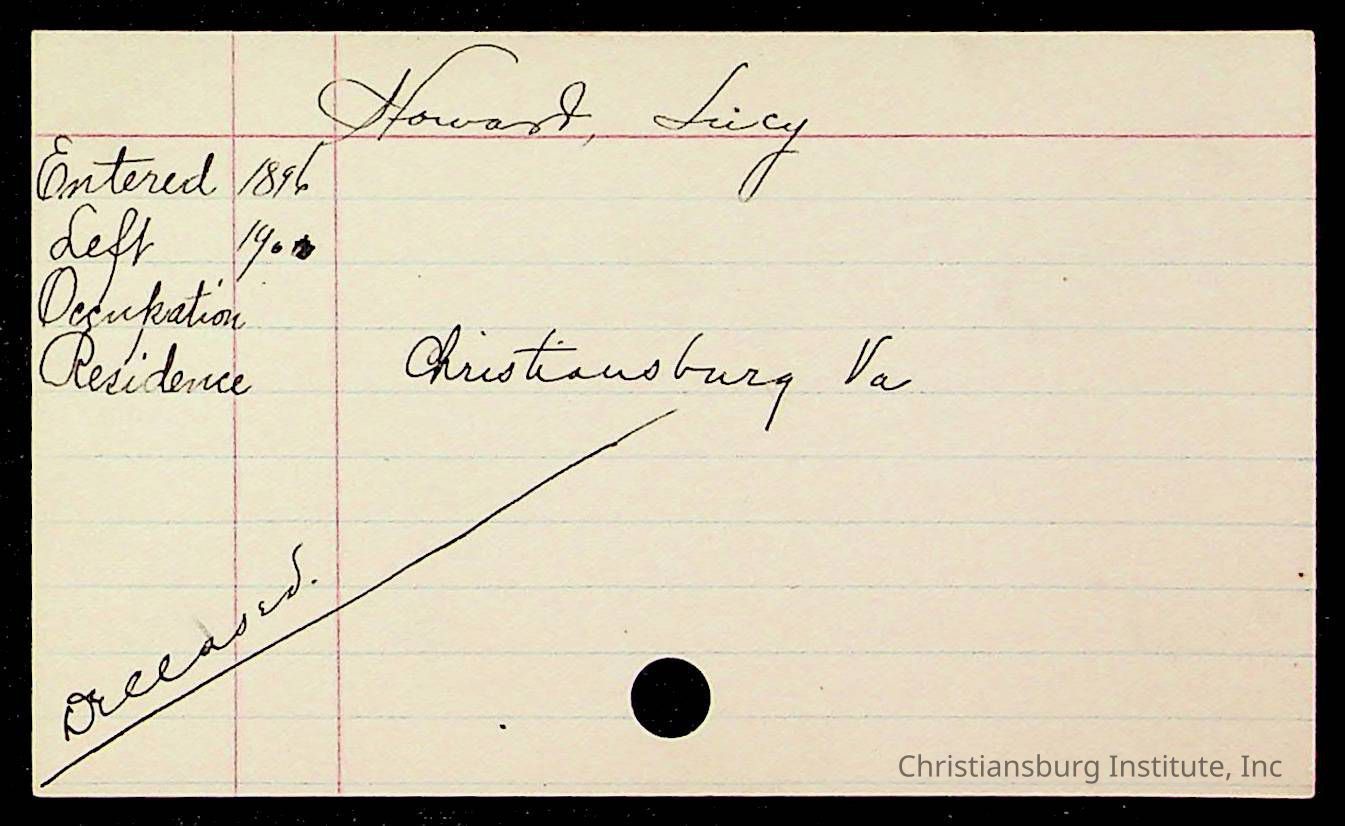 Howard, Lucy
Entered 1896
Left
Occupation
Residence Christiansburg Va
Deceased.
Christiansburg Institute, Inc